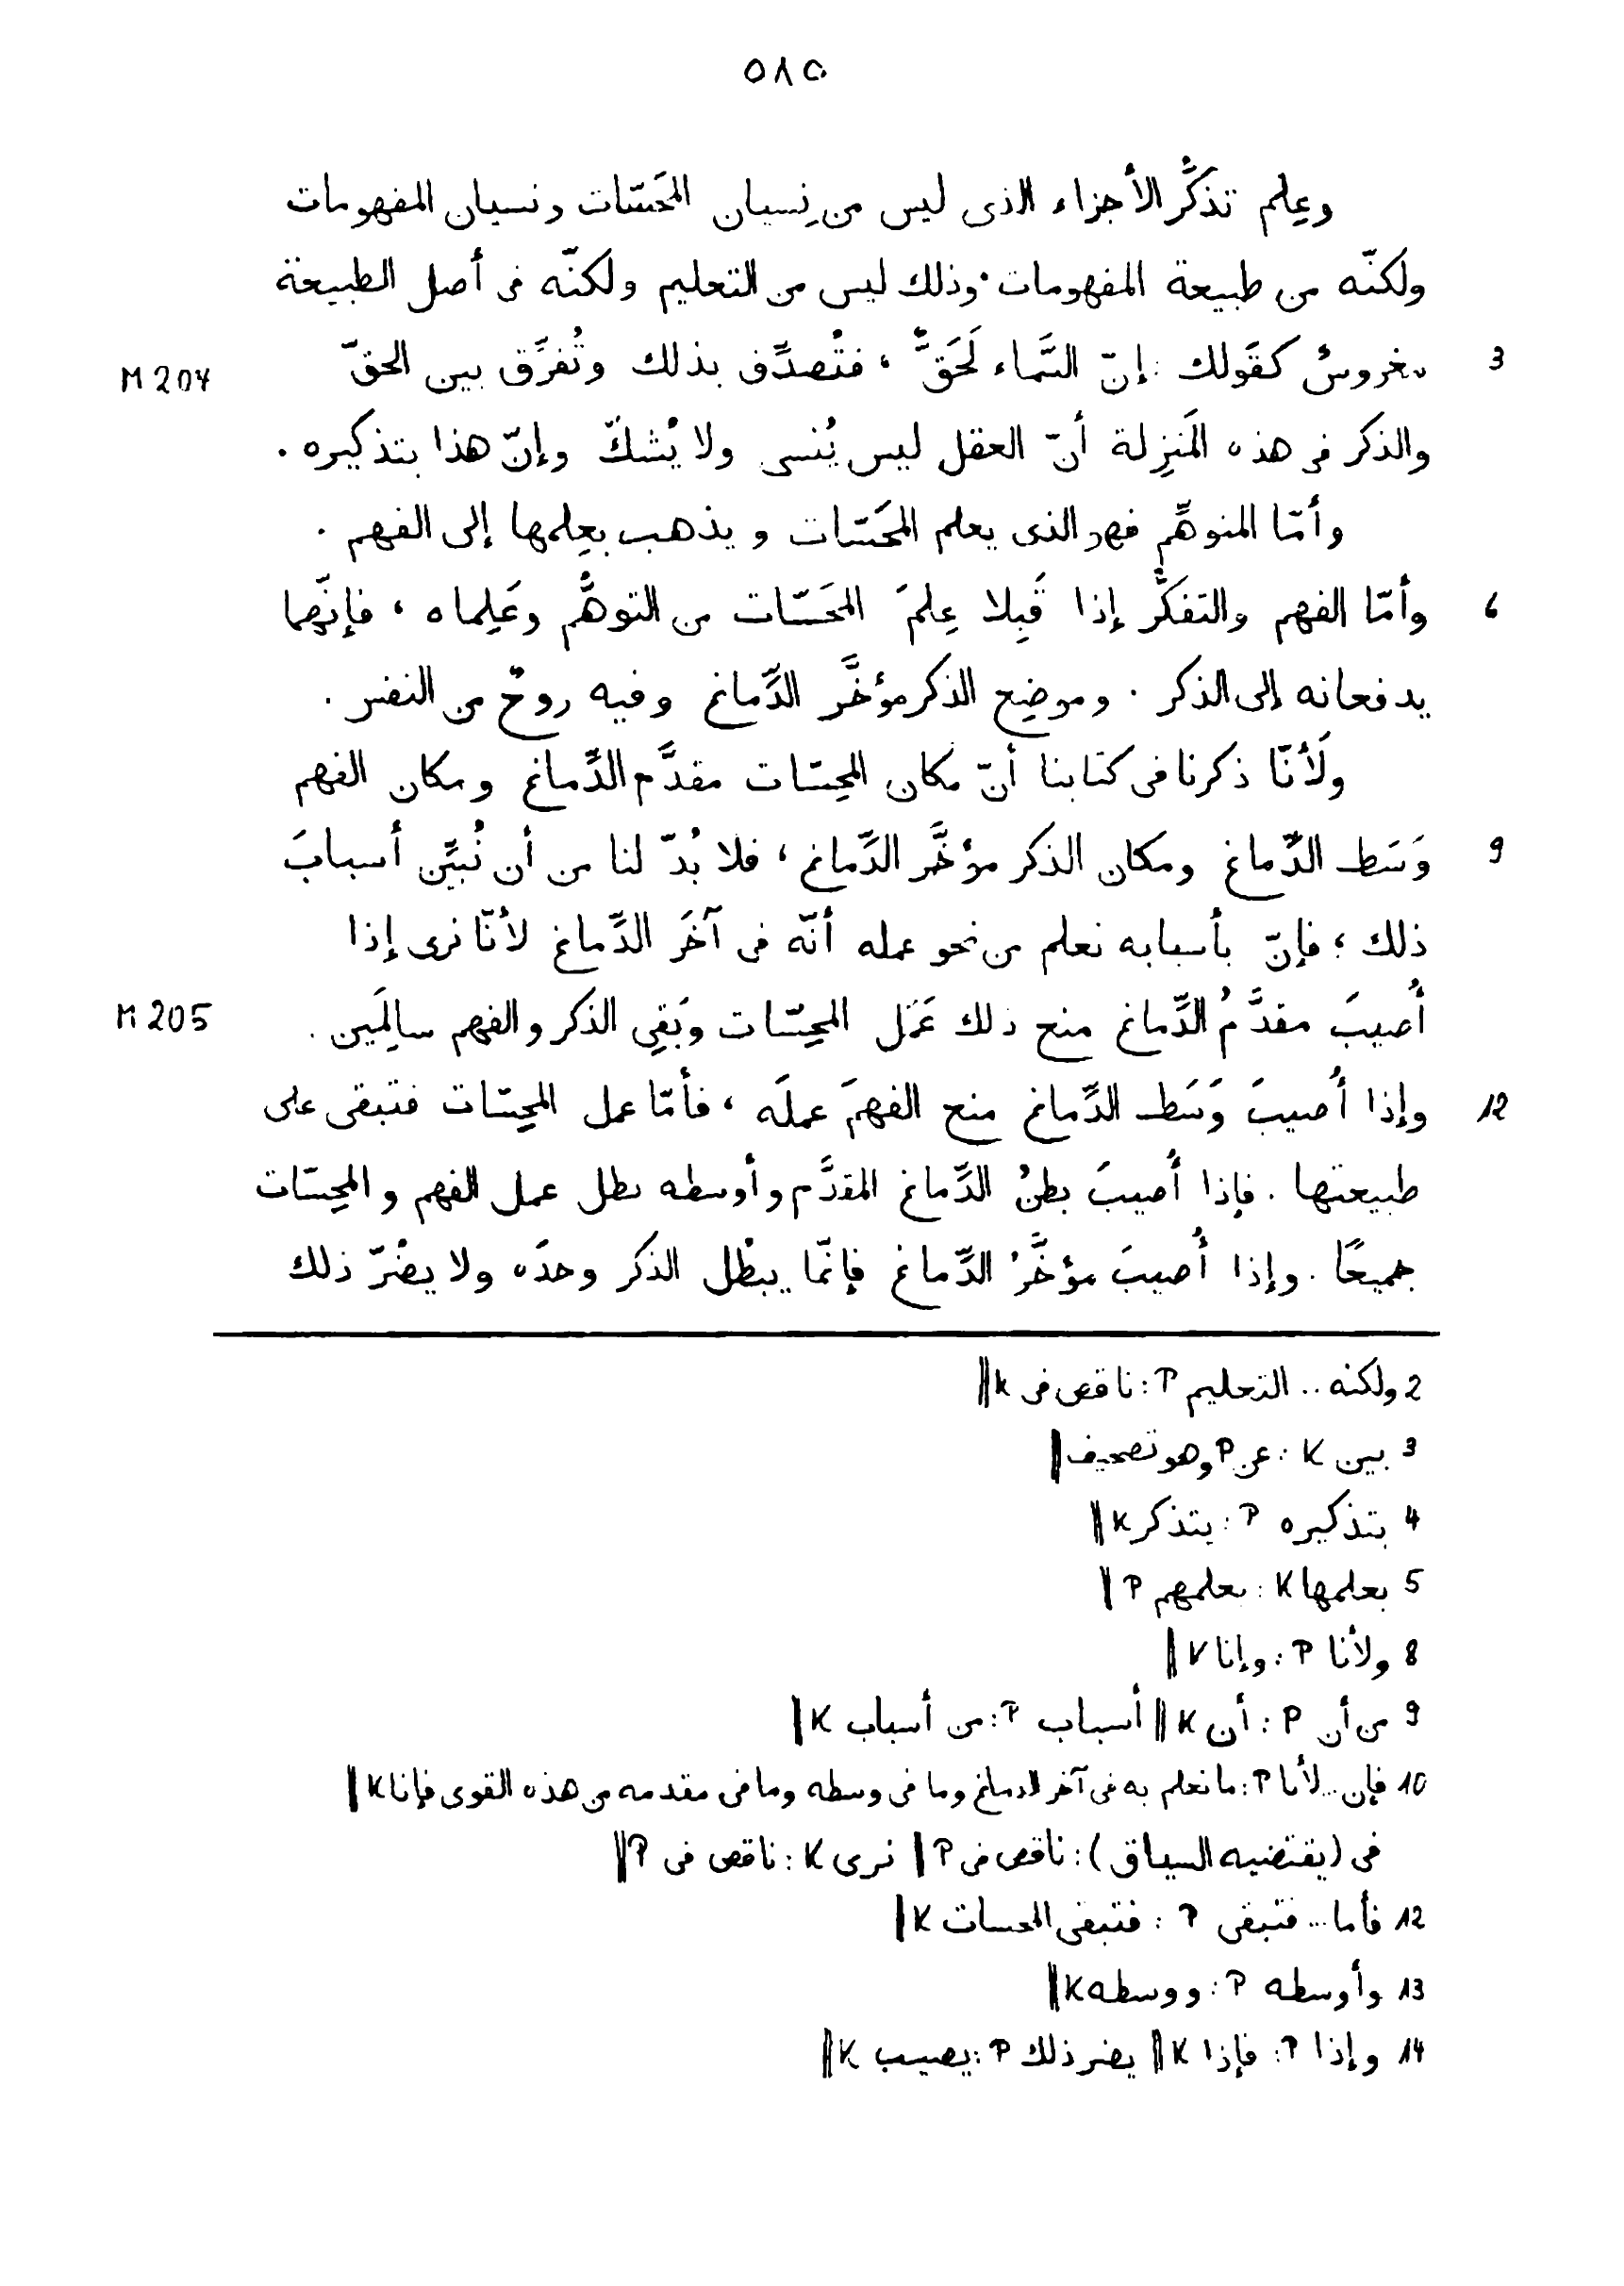 ٥٨٥
وعِلم تذكُّر الأجزاء الذى ليس من نِسيان المحَسّات ونسيان المفهومات
ولكنّه من طبيعة المفهومات. وذلك ليس من التعليم ولكنّه فى أصل الطبيعة
3 مغروسٌ كقَولك: إنّ السَّماء لَحَقٌّ، فتُصدِّق بذلك وتُفرِّق بين الحقّ M 204
والذكر فى هذه المَنزِلة أنّ العقل ليس يُنسى ولا يُشكّ وإنّ هذا بتذكيره.
وأمّا المتوهِّم فهو الذى يعلم المحَسّات ويذهب بعِلمها إلى الفهم.
6 وأمّا الفهم والتفكُّر إذا قَبِلا عِلمَ المحَسّات من التوهُّم وعَلِماه، فإنّهما
يدفعانه إلى الذكر. وموضِع الذكر مؤخَّر الدِّماغ وفيه روحٌ من النفس.
ولَأنّا ذكرنا فى كتابنا أنّ مكان المحِسّات مقدَّم الدِّماغ ومكان الفهم
9 وَسَط الدِّماغ ومكان الذكر مؤخَّر الدِّماغ، فلا بُدّ لنا من أن نُبيِّن أسبابَ
ذلك؛ فإنّ بأسبابه نعلم من نحو عمله أنّه فى آخَر الدِّماغ لأنّا نرى إذا
أُصيبَ مقدَّمُ الدِّماغ منع ذلك عَمَل المحِسّات وبَقِى الذكر والفهم سالِمَين. M 205
12 وإذا أُصيبَ وَسَط الدِّماغ منع الفهمَ عملَه، فأمّا عمل المحِسّات فتبقى على
طبيعتها. فإذا أُصيبَ بطنُ الدِّماغ المقدَّم وأوسطه بطل عمل الفهم والمحِسّات
جميعًا. وإذا أُصيبَ مؤخَّرُ الدِّماغ فإنّما يبطُل الذكر وحدَه ولا يضُرّ ذلك
2 ولكنه .. التعليم P: ناقص فى K ||
3 بين K: عن P وهو تصحيف ||
4 بتذكيره P: يتذكر K ||
5 بعلمها K: بعلمهم P ||
8 ولأنا P: وإنا K ||
9 من أن P: أن K || أسباب P: من أسباب K ||
10 فإن... لأنا P: ما نعلم به فى آخر الدماغ وما فى وسطه وما فى مقدمه من هذه القوى فإنا K ||
فى (يقتضيه السياق): ناقص فى P || نرى K: ناقص فى P ||
12 فأما... فتبقى P: فتبقى المحسات K ||
13 وأوسطه P: ووسطه K ||
14 وإذا P: فإذا K || يضر ذلك P: يصيب K ||